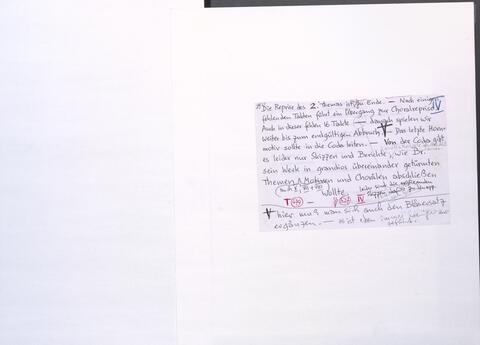 Die Reprise des 2. Themas ist zu Ende. — Nach einigen
fehlenden Takten führt ein Übergang zur Choralreprise IV
Auch in dieser fehlen 16 Takte — danach spielen wir
weiter bis zum endgültigen Abbruch. V — Das letzte Horn-
motiv sollte in die Coda leiten. — Von der Coda gibt
es leider nur Skizzen und Berichte, wie Br.
sein Werk in grandios übereinander getürmten
Themen, Motiven und Chorälen abschließen
Wollte. leider sind die
Skizzen zu knapp
T — IV
V hier muß man sich auch den Bläsersatz
ergänzen. — ist eben immer